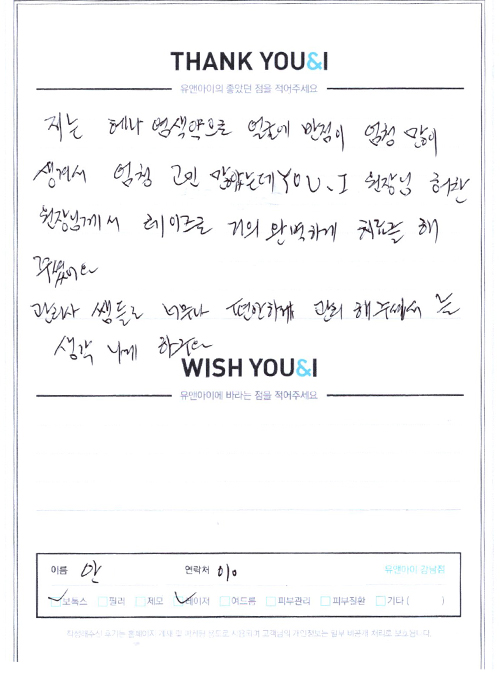 THANK YOU&I
유앤아이의 좋았던 점을 적어주세요
저는 헤나 염색약으로 얼굴에 반점이 엄청 많이
생겨서 엄청 고민 많았는데 YOU. I 원장님
원장님께서 레이즈로 거의 완벽하게 치료를 해
주셨어요
관리사 쌤들도 너무나 편안하게 관리 해주셔서 늘
생각 나게 하구요
WISH YOU&I
유앤아이에 바라는 점을 적어주세요
이름 안 연락처 010 유앤아이 강남점
보톡스 필러 제모 레이저 여드름 피부관리 피부질환 기타 ( )